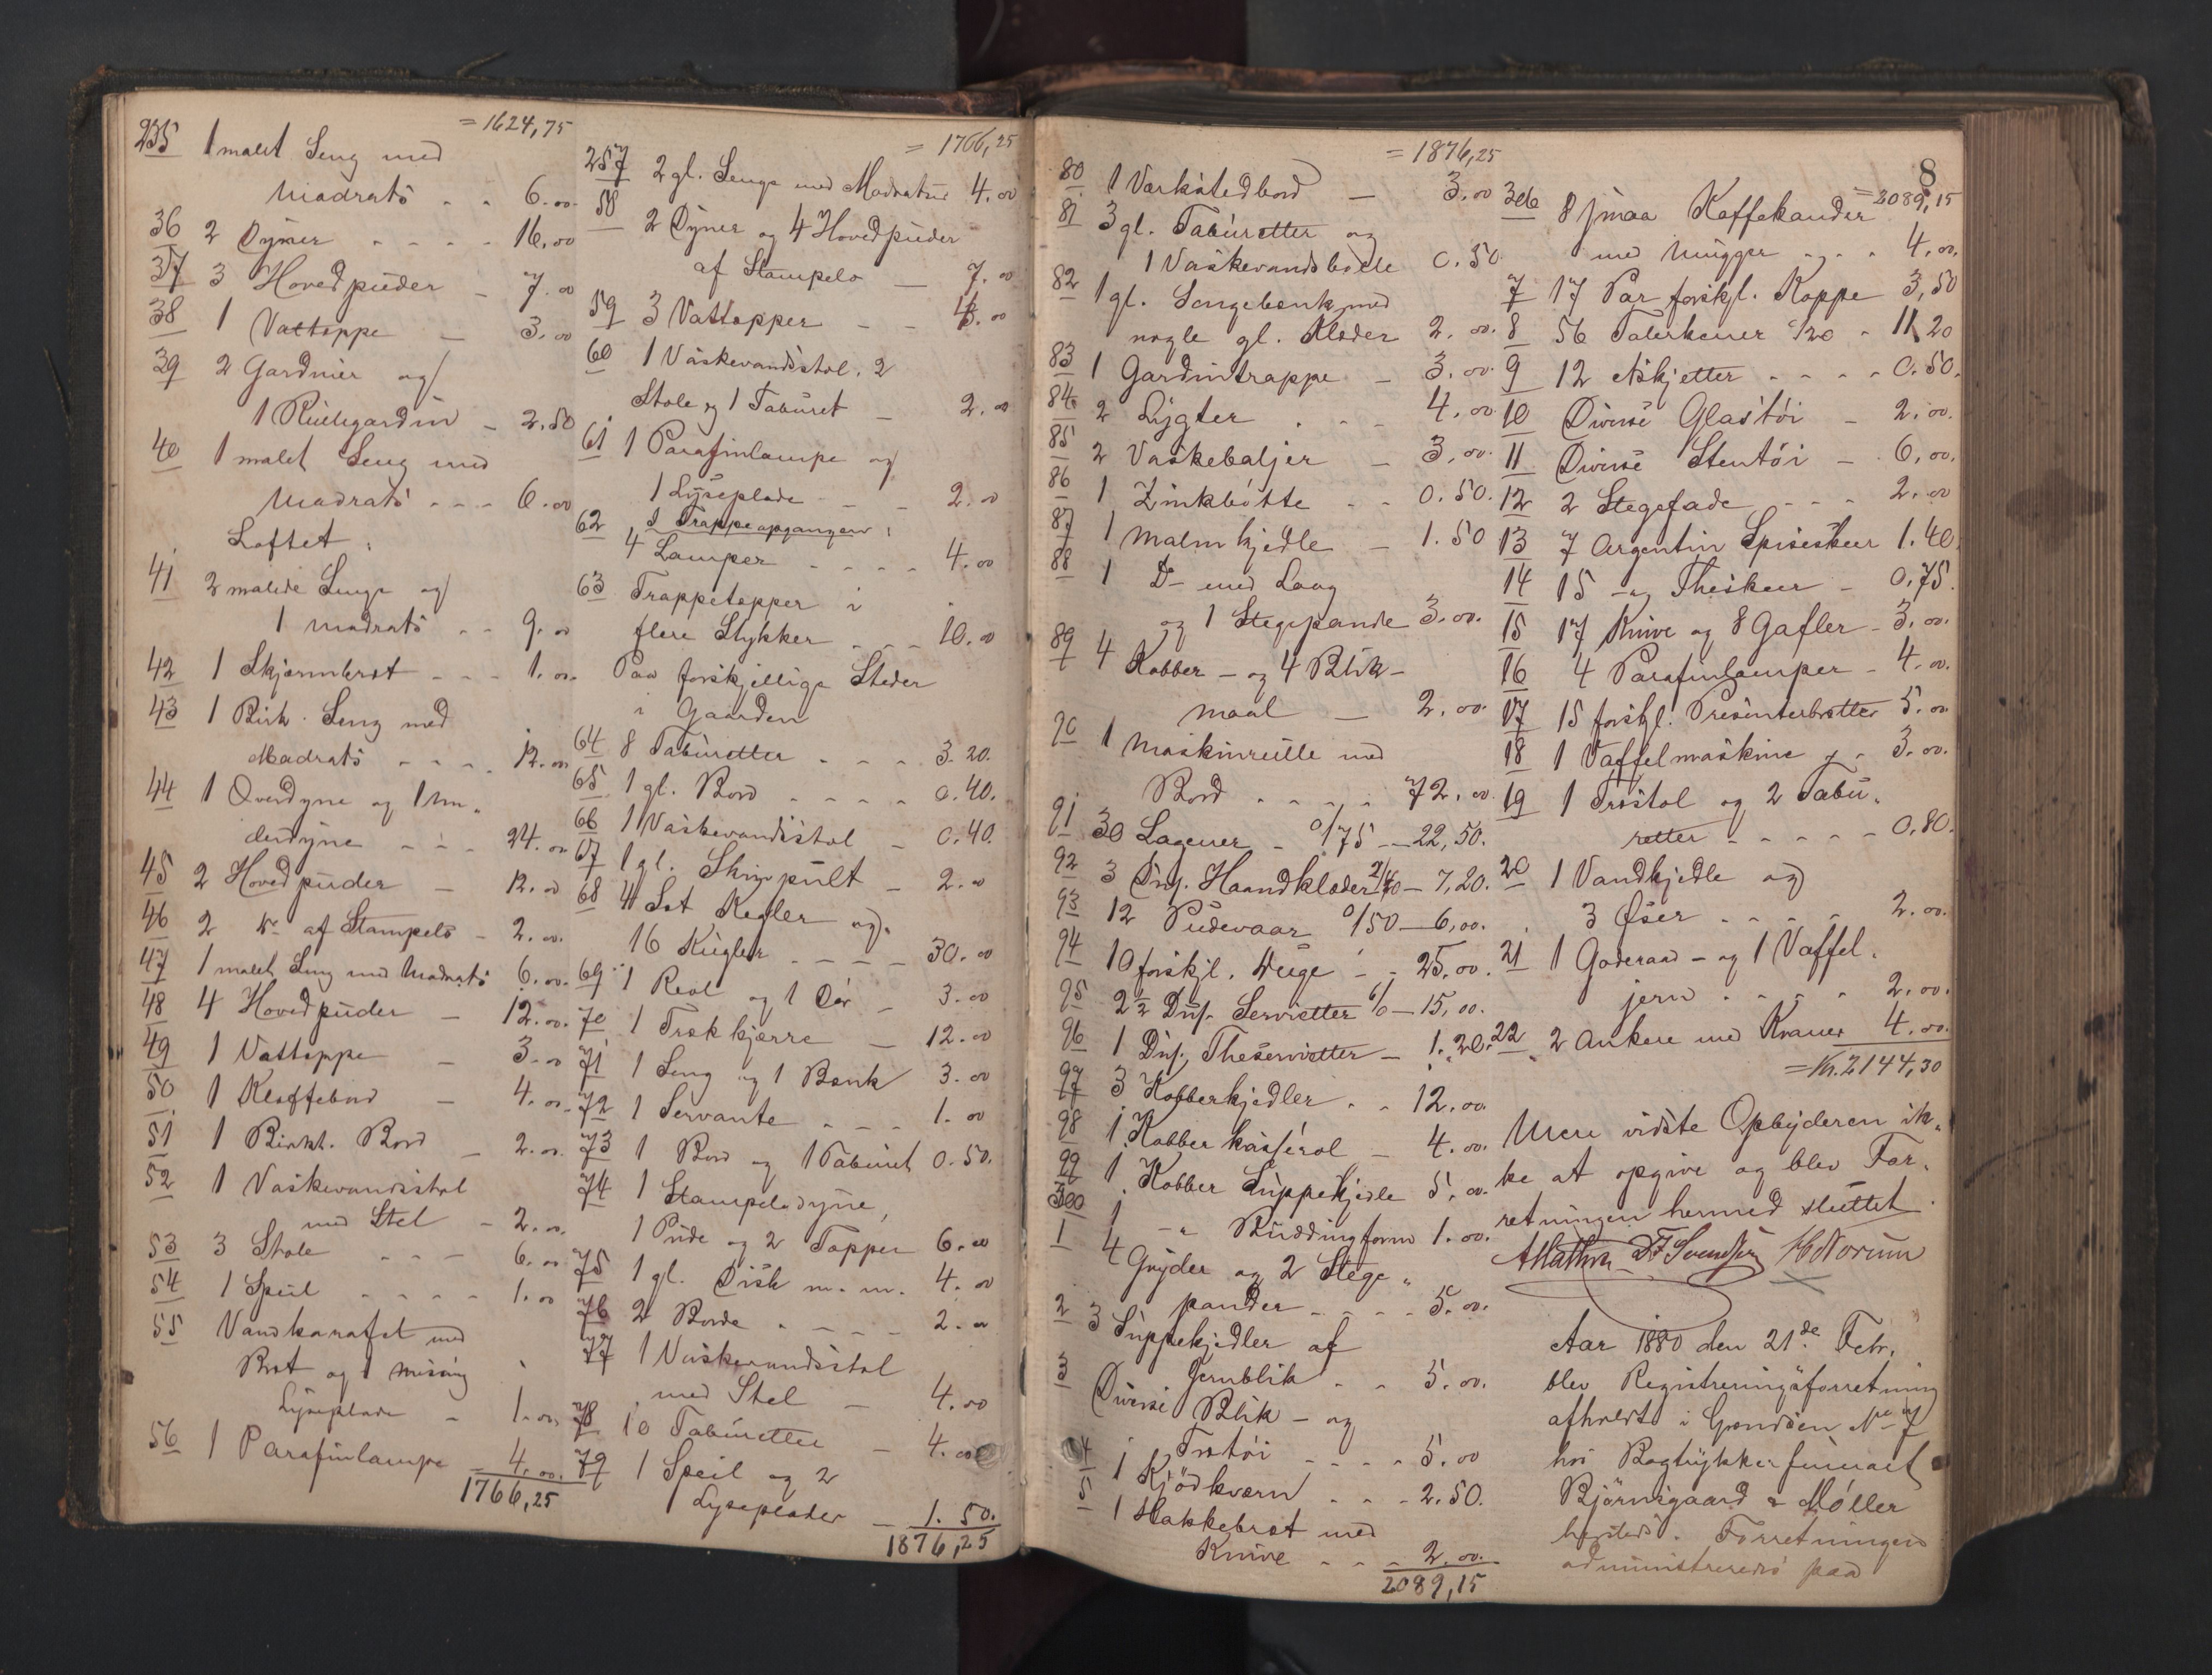 = 1624,75
235 1 malet Seng med
Madrats - - 6.00
36 2 Dyner - - - - 16,00
37 3 Hovedpuder - 7.00
38 1 Vatteppe - 3.00
39 2 Gardiner og
1 Rullegardin - 2.50
40 1 malet Seng med
Madrats - - - 6.00
Loftet:
41 2 malede Senge og
1 Madrats - - 9.00
42 1 Skjærmbræt - - - 1.00
43 1 Birk. Seng med
Madrats - - - - 12.00
44 1 Overdyne og 1 Un-
derdyne - - - 24.00
45 2 Hovedpuder - 12.00
46 2 Do af Stampels - 2.00
47 1 malet Seng med Madrats 6.00
48 4 Hovedpuder - 12.00
49 1 Vatteppe - 3.00
50 1 Klaffebord - 4.00
51 1 Birkt. Bord - 2.00
52 1 Vaskevandsstol
med Stel - 2.00
53 3 Stole - - - 6.00
54 1 Speil - - - - 1.00
55 Vandkarafel med
Bret og 1 Messing
Lyseplade - 1.00
56 1 Parafinlampe - 4.00
1766,25
= 1766,25
257 2 gl. Senge med Madratser 4.00
58 2 Dyner og 4 Hovedpuder
af Stampels - 7.00
59 3 Vattepper - - 4.00
60 1 Vaskevandsstol, 2
Stole og 1 Taburet - 2.00
61 1 Parafinlampe og
1 Lyseplade - - 2.00
62 I Trappeopgangen:
4 Lamper - - - - 4.00
63 Trappetepper i
flere Stykker - - - 10.00
Paa forskjellige Steder
i Gaarden
64 8 Taburetter - - - 3.20.
65 1 gl. Bord - - - - 0.40.
66 1 Vaskevandsstol - 0.40.
67 1 gl. Skrivpult - 2.00
68 4 Set Kegler og
16 Kugler - - - - 30.00
69 1 Reol og 1 Dør - 3.00
70 1 Trækkjærre - 12.00
71 1 Seng og 1 Bænk 3.00
72 1 Servante - - - 1.00
73 1 Bord og 1 Taburet 0.50.
74 1 Stampelsdyne,
1 Pude og 2 Tepper 6.00
75 1 gl. Disk m. m. 4.00
76 2 Borde - - - - 2.00
77 1 Vaskevandsstol
med Stel - 4.00
78 10 Taburetter - 4.00
79 1 Speil og 2
Lyseplader - 1.50.
1876,25
= 1876,25
80 1 Værkstedbord - 3.00
81 3 gl. Taburetter og
1 Vaskevandsbolle 0.50
82 1 gl. Sengebænk med
nogle gl. Klæder 2.00.
83 1 Gardintrappe - 3.00.
84 2 Lygter - - - 4.00.
85 2 Vaskebaljer - 3.00.
86 1 Zinkbøtte - - 0.50.
87 1 Malmkjedle - 1.50
88 1 Do med Laag
og 1 Stegepande 3.00.
89 4 Kobber - og 4 Blik-
maal - 2.00.
90 1 Maskinrulle med
Bord - - - - 72.00.
91 30 Lagener - 0/75 - 22,50.
92 3 Dus. Haandklæder 2/40 - 7,20.
93 12 Pudevaar 0/50 - 6,00.
94 10 forskjl. Duge - - 25.00.
95 2½ Dus. Servietter 6/0 - 15,00.
96 1 Dus. Theservietter - 1.20.
97 3 Kobberkjedler - - 12.00
98 1 Kobber kasserol - 4.00
99 1 Kobber Suppekjedle 5.00.
300 1 -"- Buddingform 1.00.
1 4 Gryder og 2 Stege-
pander - - - - 5.00.
2 3 Suppekjedler af
Jernblik - - 5.00.
3 Diverse Blik - og
Trætøi - - - - 5.00
4 1 Kjødkværn - - - 2.50.
5 1 Hakkebræt med
Knive - - - 2.00.
2089,15
8
= 2089,15
306 8 smaa Kaffekander
med Mugger - - - 4.00.
7 17 Par forskjl. Koppe 3,50
8 56 Talerkener 0/20 - 11,20
9 12 Askjetter - - - - 0.50.
10 Diverse Glastøi - 2.00.
11 Diverse Stentøi - 6,00.
12 2 Stegefade - - - 2.00
13 7 Argentin Spiseskeer 1.40
14 15 -"- Theskeer - 0,75.
15 17 Knive og 8 Gafler - 3.00.
16 4 Parafinlamper - 4.00.
17 15 forskjl. Præsenterbretter 5.00
18 1 Vaffelmaskine - - 3.00.
19 1 Træstol og 2 Tabu-
retter - - - - 0,80.
20 1 Vandkjedle og
3 Øser - - - - 2.00.
21 1 Goderaad - og 1 Vaffel-
jern - - - - 2.00.
22 2 Ankere med Kraner 4.00.
= Kr. 2144,30
Mere vidste Opbyderen ik-
ke at opgive og blev For-
retningen hermed sluttet.
DF Svendsen H Norum
Aar 1880 den 21de Febr.
blev Registreringsforretning
afholdt i Grændsen No 7
hos Bogtrykkerfirmaet
Bjørnsgaard & Møller
hersteds. Forretningen
administreredes paa